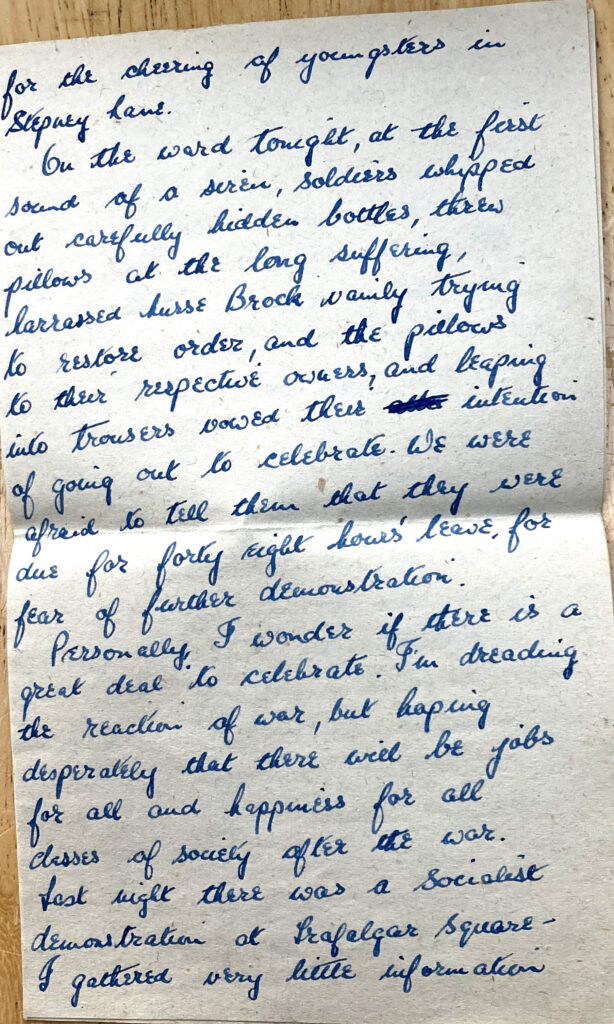 for the cheering of youngsters in
Stepney Lane.
On the ward tonight, at the first
sound of a siren, soldiers whipped
out carefully hidden bottles, threw
pillows at the long suffering,
harrassed nurse Brock vainly trying
to restore order, and the pillows
to their respective owners, and leaping
into trousers vowed their intention
of going out to celebrate. We were
afraid to tell them that they were
due for forty eight hours' leave, for
fear of further demonstration.
Personally, I wonder if there is a
great deal to celebrate. I'm dreading
the reaction of war, but hoping
desperately that there will be jobs
for all and happiness for all
classes of society after the war.
Last night there was a Socialist
demonstration at Trafalgar Square -
I gathered very little information